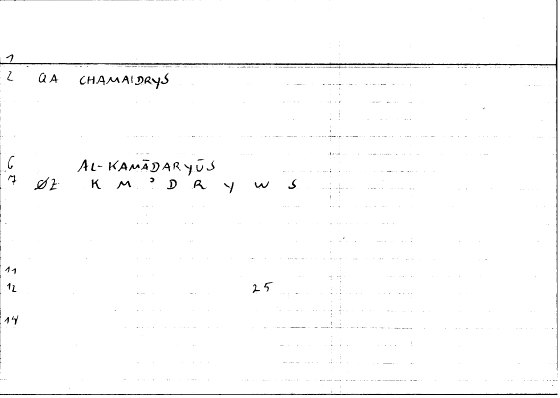 1
2 QA CHAMAIDRYS
6 AL-KAMĀDARYŪS
7 ØZ K M ' D R Y W S
11
12 25
14